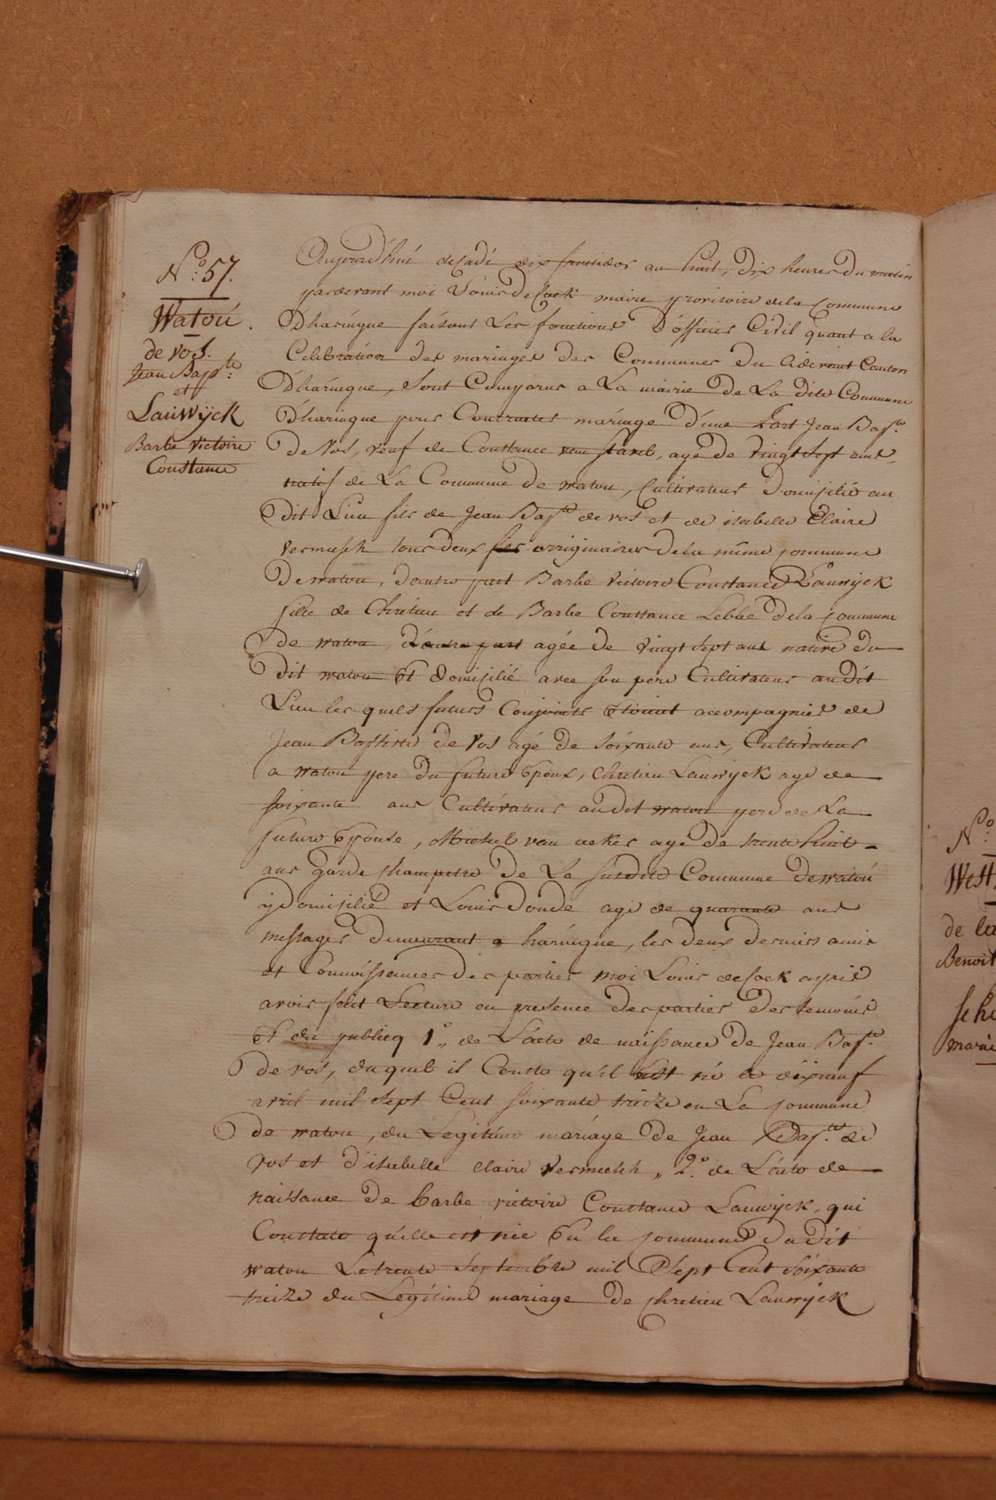 N.o 57.
Watoú.
de vos.
Jean Bapte
et
Lauwÿck
Barbe Victoire
Constance
Aujourdhui decadé dix fructidor an huit, dix heures du matin
pardevant moi Louis De Cock maire provisoire de la commune
Dharingue faisant les fonctions D'officier Civil quant a la
Celebration des mariages des Communes du cidevant Canton
D'haringue, sont Comparus a La mairie de La dite Commune
D'haringue pour Contracter mariage D'une Part Jean Bapte
De Vos, veuf de Constance van , agé de vingt sept ans
natif de La Commune de watou, Cultivateur Domicilié au
Dit Lieu fils de Jean Bapte de vos et de isabelle Claire
Vermersch tous deux originaires de la même commune
De watou, Dautre part Barbe Victoire Constance Lauwijck
fille de Chretien et de Barbe Constance Lebbe de la commune
de watou, D'autre part agée de vingt sept ans native du
dit watou et Domicilié avec son pere Cultivateur au dit
Lieu les quels futurs Conjoints Etoient accompagniés de
Jean Baptiste de Vos agé de soixante ans, Cultivateur
a watou pere du future Epoux, Chretien Lauwijck agé de
soixante ans Cultivateur audit watou pere de La
future Epouse, Michel van acker agé de trente huit
ans garde champetre de La susdite Commune de watoú
y Domicilié et Louis Donde agé de quarante ans
messager demeurant a haringue, les deux derniers amis
et Connoissances Des parties moi Louis de Cock apris
avoir fait Lecture en presence des parties des temoins
Et du publicq 1.o de L'acte de naissance de Jean Bapte
De vos, du quel il Conste qu'il est né Le dixneuf
avril mil sept Cent soixante treize en La commune
de watou, du Legitime mariage de Jean Bapte de
vos et d'isabelle claire Vermersch, 2.o de L'acte de
naissance de barbe victoire Constance Lauwijck, qui
Constate qu'elle est née En la commune du dit
watou Le trente septembre mil sept Cent soixante
treize du Legitime mariage de Chretien Lauwÿck
N.o
West
de la
Benoit